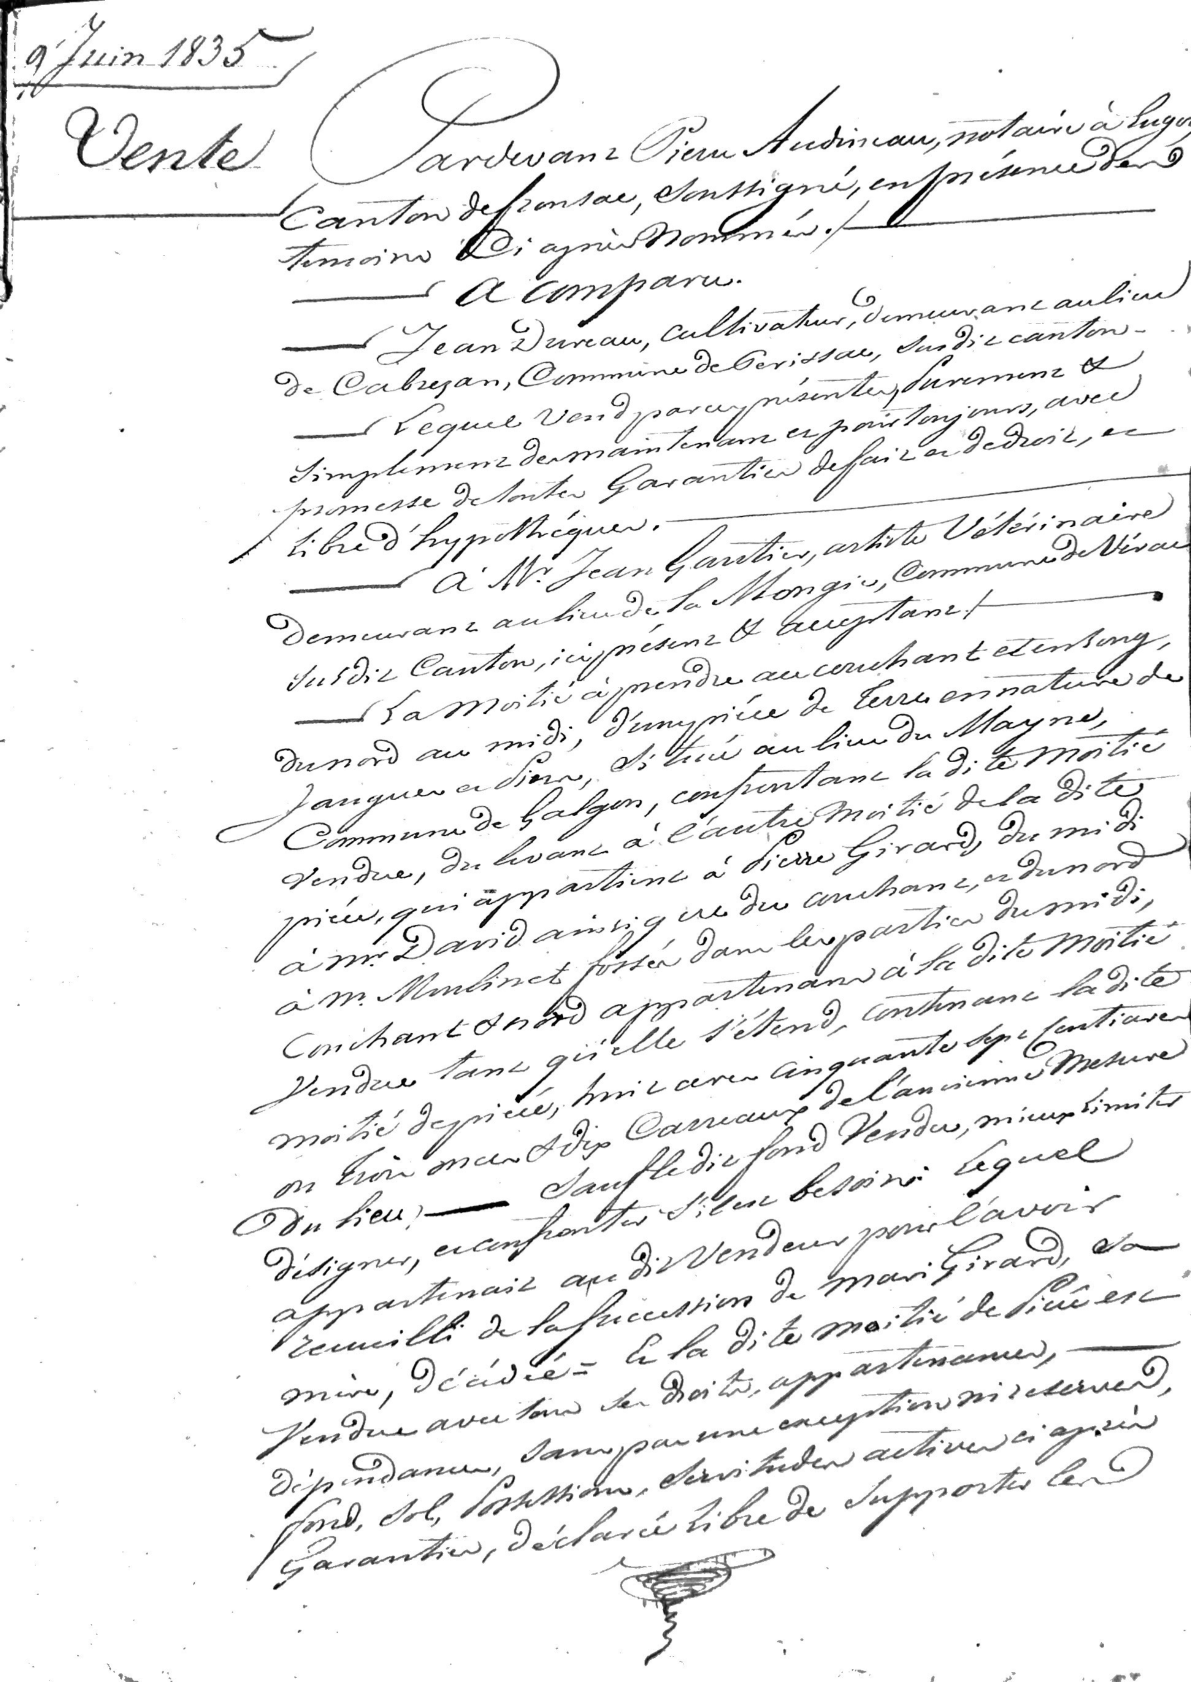 9 Juin 1835
Vente
Pardevant Pierre Audineau, notaire à Lugon
Canton de fronsac, soussigné, en présence des
temoins Ci après Nommés ./.
A comparu.
Jean Dureau, Cultivateur, demeurant au lieu
de Cabregan, Commune de Perissac, susdit canton
Lequel Vend par ces présentes, purement &
simplement dès maintenant et pour toujours, avec
promesse de toutes Garanties de fait et de droit, et
libre d'hypothéques.
à Mr. Jean Gautier, artiste Vétérinaire
demeurant au lieu de la Mongie, Commune de Vérac
susdit Canton, ici présent & acceptant ./
La moitié à prendre au couchant et en long,
du nord au midi, d'une pièce de terre en nature de
Jaugues et Pins, située au lieu du Mayne,
Commune de Galgon, confrontant la dite moitié
vendue, du levant à l'autre moitié de la dite
pièce, qui appartient à Pierre Girard, du midi
à mr. David ainsi que du couchant, et du nord
à m. Moulinet fossés dans les parties du midi,
Couchant & nord appartenant à la dite moitié
Vendue tant qu'elle s'étend, contenant la dite
moitié de pièce, huit ares cinquante sept centiares
ou trois &dix Carreaux de l'ancienne Mesure
du lieu; Sauf le dit fond Vendu, mieux limiter
désigner, et confronter s'il est besoin: Lequel
appartenait au dit Vendeur pour l'avoir
recueilli de la succession de mari Girard, sa
mère, décédée = Et la dite moitié de pièce est
Vendue avec tous ses droits, appartenances,
dépendances, sans par une exception ni reserves,
fond, sol, Possessions, servitudes actives ci après
Garanties, déclarée Libre de Supporter les